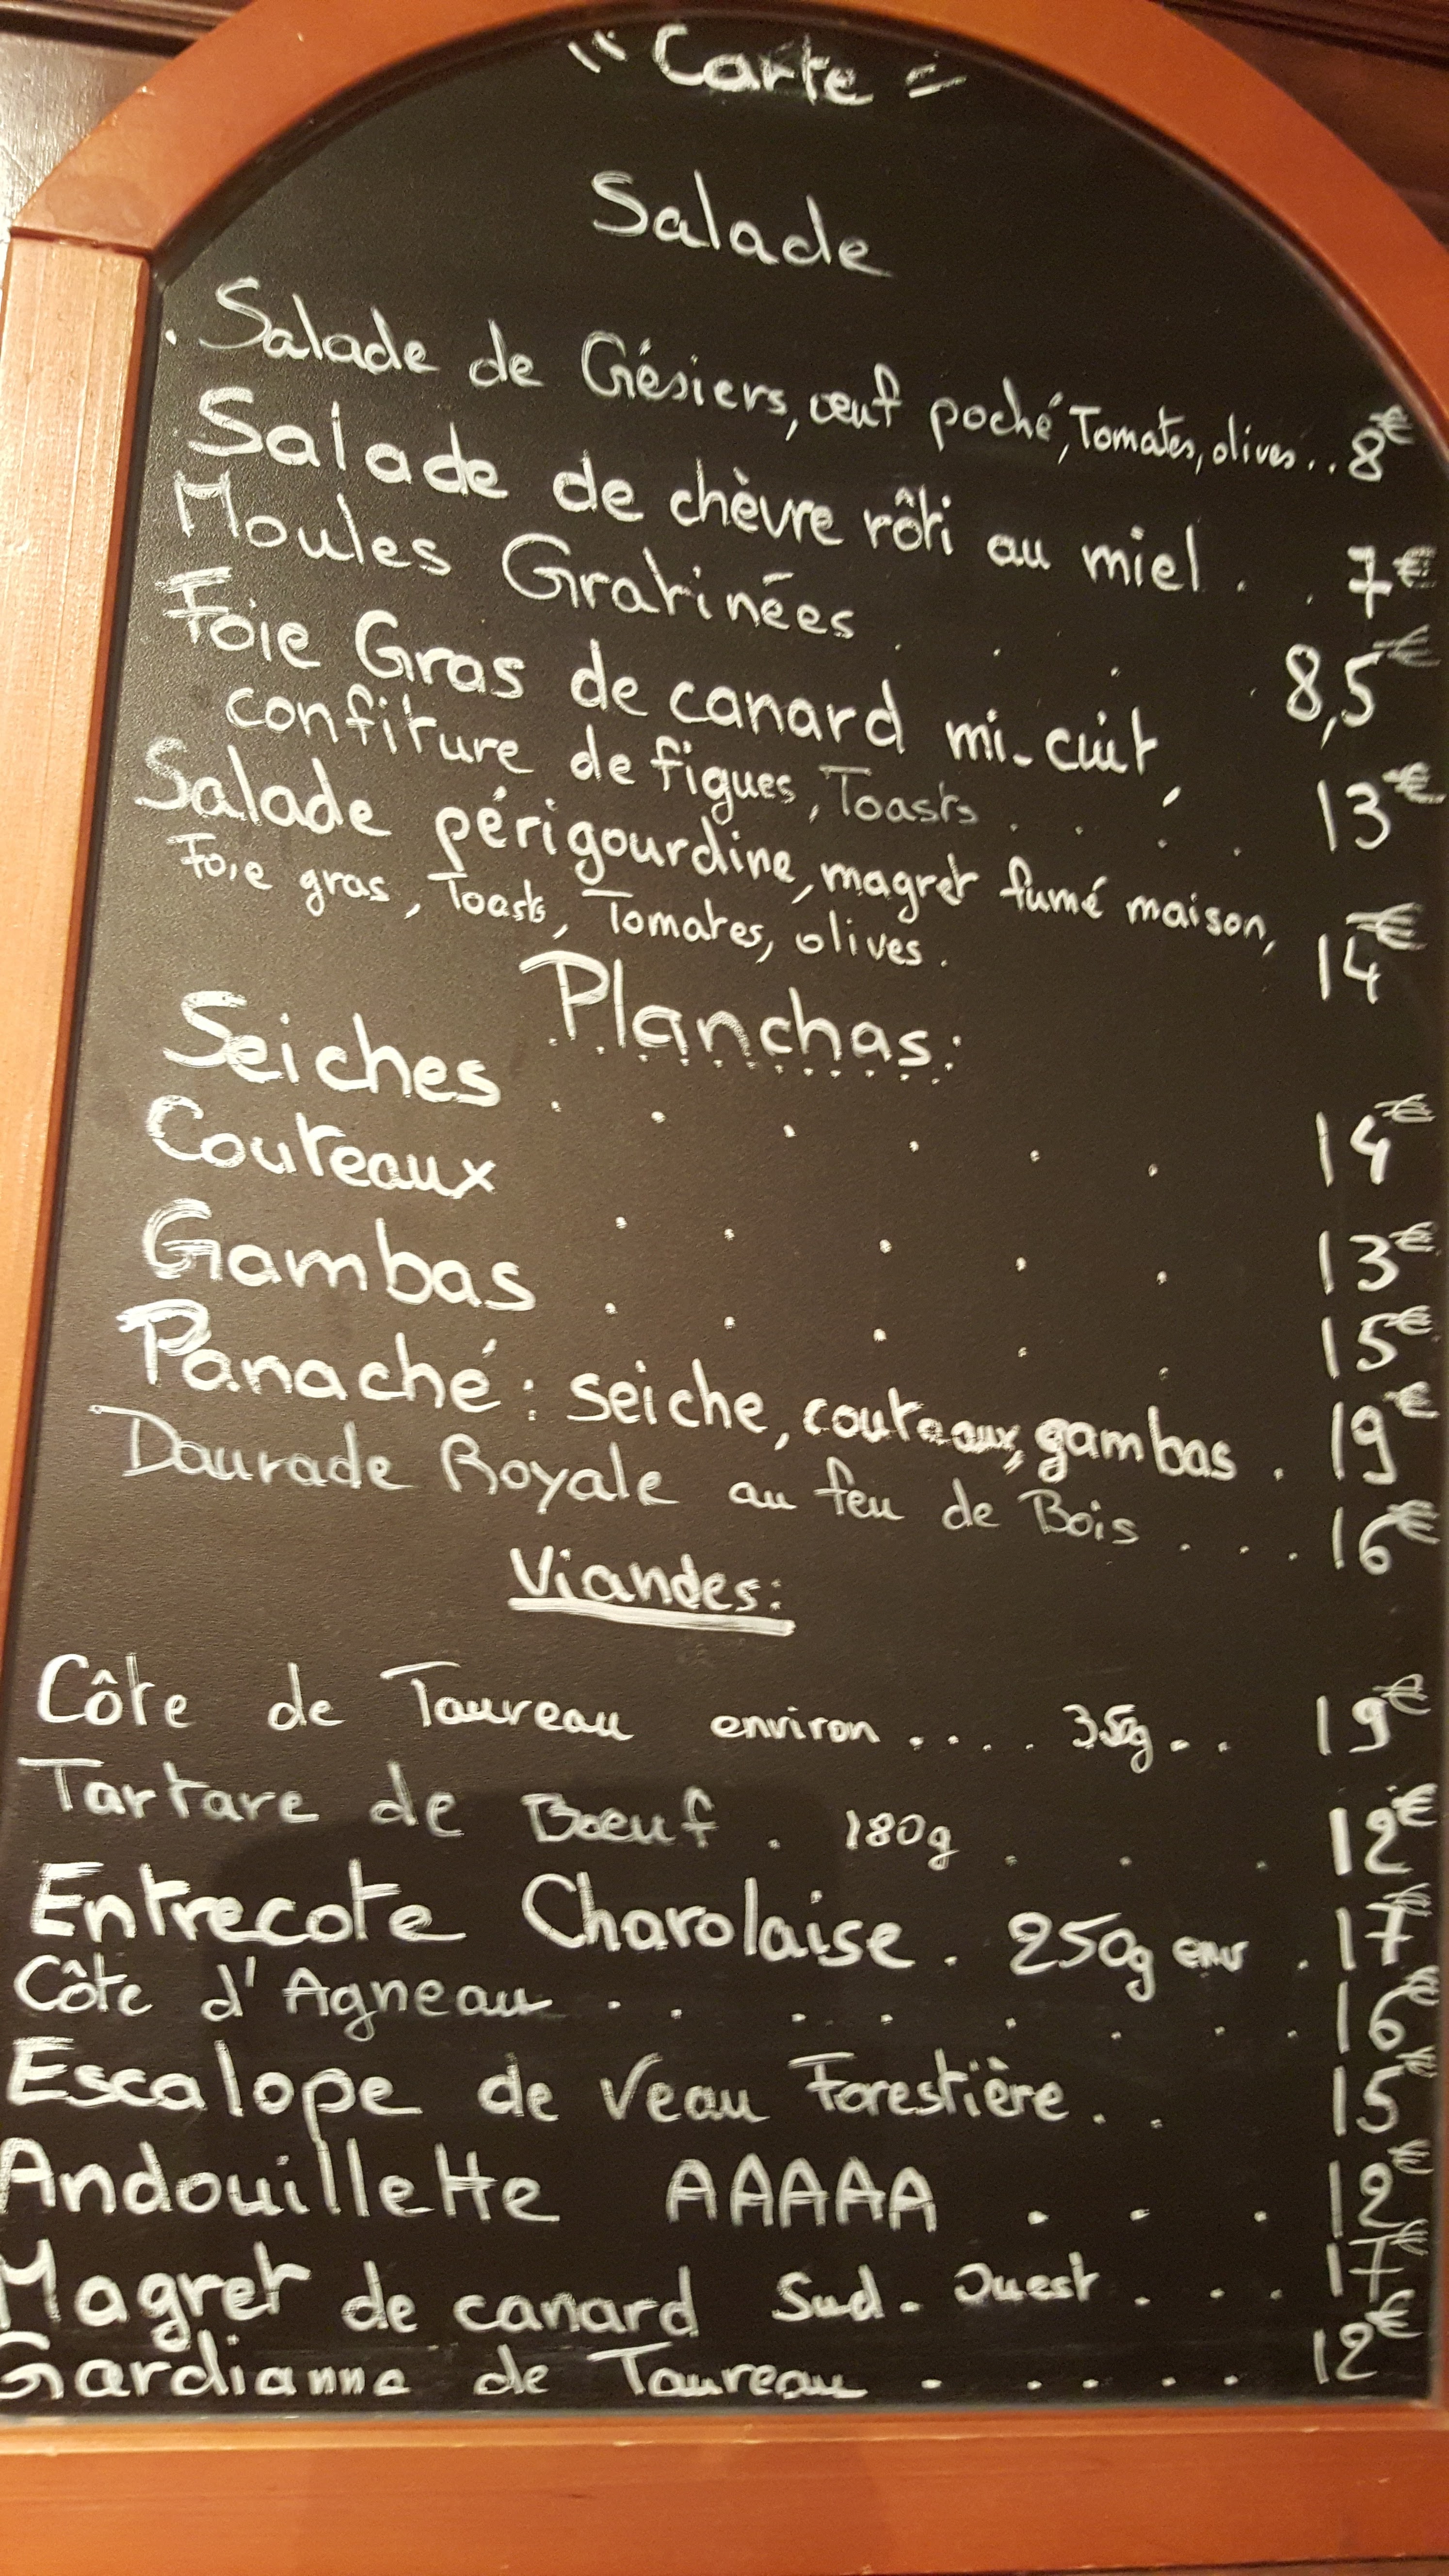 "Carte"
Salade
. Salade de Gésiers, œuf poché, Tomates, olives... 8€
Salade de chèvre rôti au miel . . 7€
Moules Gratinées . . . . 8,5€
Foie Gras de canard mi-cuit,
confiture de figues, Toasts . . . . 13€
Salade périgourdine, magret fumé maison,
Foie gras, Toasts, Tomates, olives. 14€
Planchas:
Seiches . . . . . . 14€
Couteaux . . . . . 13€
Gambas . . . . . 15€
Panaché: seiche, couteaux, gambas . 19€
Daurade Royale au feu de Bois .... 16€
Viandes:
Côte de Taureau environ .... 350g.. 19€
Tartare de Bœuf . 180g . . . 12€
Entrecote Charolaise . 250g env . 17€
Côte d'Agneau . . . . . . . . 16€
Escalope de Veau Forestière . . 15€
Andouillette AAAAA . . . 12€
Magret de canard Sud-Ouest . . . 17€
Gardianne de Taureau . . . . . 12€